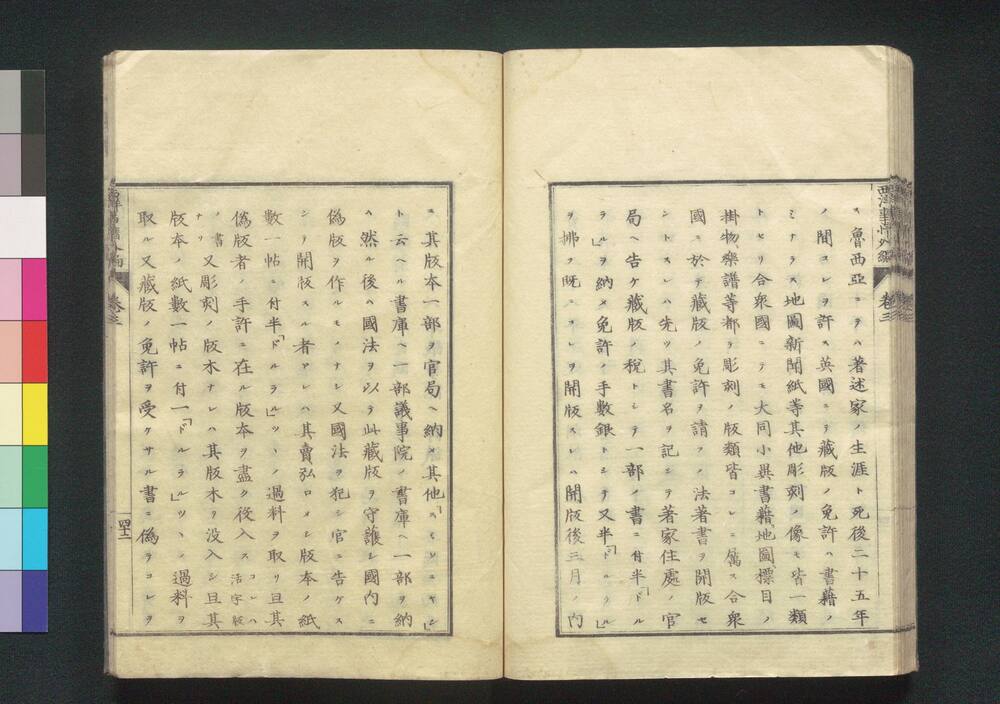 西洋事情外編
卷三
ス魯西亞ニテハ著述家ノ生涯ト死後二十五年
ノ間コレヲ許ス英國ニテ藏版ノ免許ハ書籍ノ
ミナラス地圖新聞紙等其他彫刻ノ像モ皆一類
トセリ合衆國ニテモ大同小異書籍、地圖、標目ノ
掛物、樂譜等都テ彫刻ノ版類皆コレニ屬ス合衆
國ニ於テ藏版ノ免許ヲ請フノ法著書ヲ開版セ
ントスレハ先ツ其書名ヲ記シテ著家住處ノ官
局ヘ告ケ藏版ノ税トシテ一部ノ書ニ付半「ドル
ラル」ヲ納メ免許ノ手數銀トシテ又半「ドルラル」
ヲ拂フ既ニコレヲ開版スレハ開版後三月ノ内
ニ其版本一部ヲ官局ヘ納メ其他「スミソニヤン」
ト云ヘル書庫ヘ一部議事院ノ書庫ヘ一部ヲ納
ム然ル後ハ國法ヲ以テ此藏版ヲ守護シ國内ニ
僞版ヲ作ルモノナシ又國法ヲ犯シ官ニ告ケス
シテ開版スル者アレハ其賣弘ロメシ版本ノ紙
數一帖ニ付半「ドルラル」ツヽノ過料ヲ取リ且其
僞版者ノ手許ニ在ル版本ヲ盡ク沒入ス コレハ活字版
ノ書ナリ 又彫刻ノ版木ナレハ其版木ヲ沒入シ且其
版本ノ紙數一帖ニ付一「ドルラル」ツヽノ過料ヲ
取ル又藏版ノ免許ヲ受ケサル書ニ僞テコレヲ
卷三
四十二